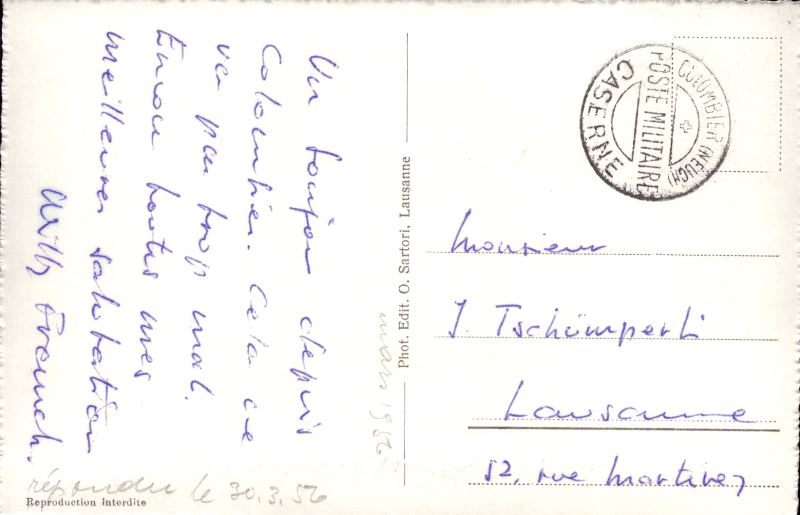 Un bonjour depuis
Colombier. Cela ne
va pas trop mal.
Envoie toutes mes
meilleures salutation
Willy
répondu le 30.3.56
Reproduction interdite
Phot. Edit. O. Sartori, Lausanne
mars 1956
COLOMBIER (NEUCH)
POSTE MILITAIRE
CASERNE
Monsieur
J. Tschümperli
Lausanne
52, rue Martinez